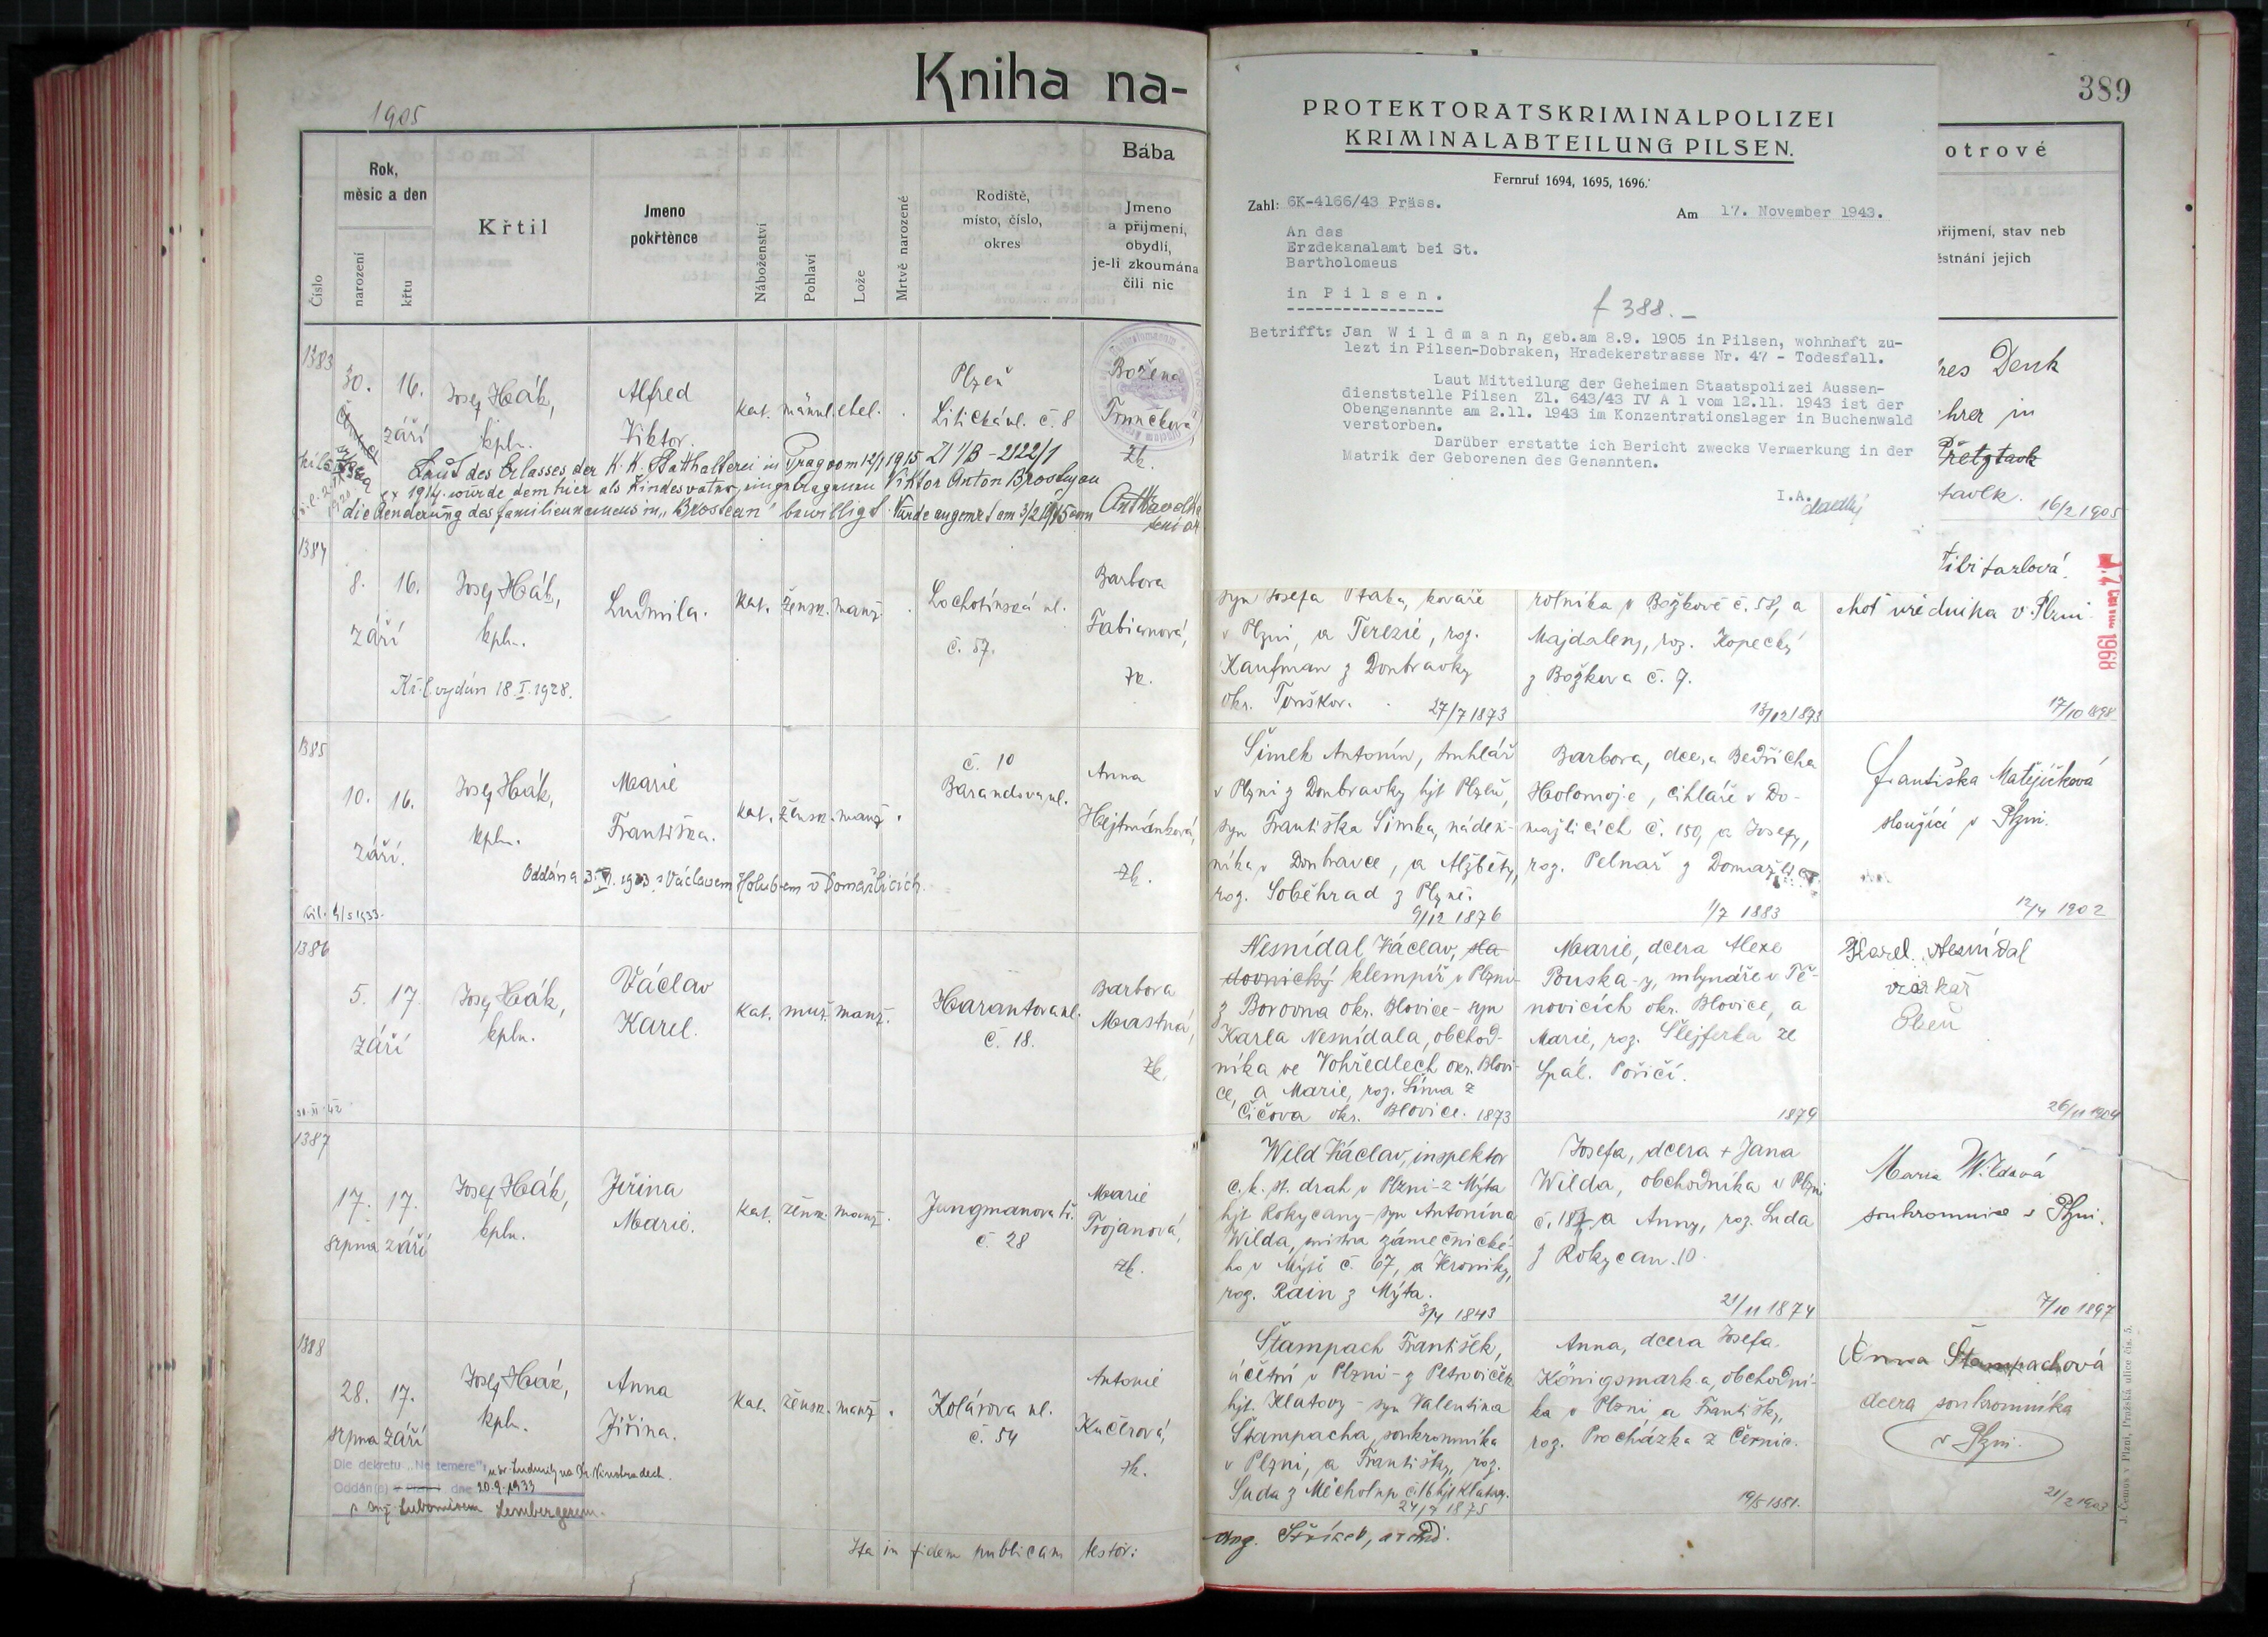 Kniha na-
1905
Číslo
Rok,
měsíc a den
narození
křtu
Křtil
Jmeno
pokřtěnce
Náboženství
Pohlaví
Lože
Mrtvě narozené
Rodiště,
místo, číslo,
okres
Bába
Jmeno
a přijmení,
obydlí,
je-li zkoumána
čili nic
1383
30. 16.
září
Josef Hák,
kpln.
Alfred
Viktor.
kat. männl. ehel.
Plzeň
Litická ul. č. 8
Božena
zk.
Laut des Erlasses der K. K. Statthalterei in Prag vom
wurde dem hier als Kindesvater eingetragenen Viktor Anton
die Aenderung des Familiennamens in „Brostean" bewilligt.
1384
8. 16.
září
Josef Hák,
kpln.
Ludmila.
Kat. žensk. manž.
Lochotínská ul.
č. 57.
Barbora
Fabianová,
zk.
Kř. l. vydán 18. I. 1928.
1385
10. 16.
září.
Josef Hák,
kpln.
Marie
Františka.
Kat. žensk. manž.
č. 10
Barandova ul.
Anna
Hejtmánková,
zk.
Oddána s Václavem Holubem v Domažlicích.
1386
5. 17.
září
Josef Hák,
kpln.
Václav
Karel.
Kat. muž. manž.
Harantova ul.
č. 18.
Barbora
Mastná,
zk.
1387
17. 17.
srpna září
Josef Hák,
kpln.
Jiřina
Marie.
Kat. žensk. manž.
Jungmanova tř.
č. 28
Marie
Trojanová,
zk.
1388
28. 17.
srpna září
Josef Hák,
kpln.
Anna
Jiřina.
Kat. žensk. manž.
Kolárova ul.
č. 54
Antonie
Kučerová,
zk.
Dle dekretu „Ne temere" u sv. Ludmily na Kr. Vinohradech.
Oddán(a) dne 20.9.1933
s Ing. Lubomírem Lembergerem.
Ita in fidem publicam testor:
389
PROTEKTORATSKRIMINALPOLIZEI
KRIMINALABTEILUNG PILSEN.
Fernruf 1694, 1695, 1696.
Zahl: 6K-4166/43 Präss.
Am 17. November 1943.
An das
Erzdekanalamt bei St.
Bartholomeus
in Pilsen.
f 388.-
Betrifft: Jan Wildmann, geb.am 8.9. 1905 in Pilsen, wohnhaft zu-
lezt in Pilsen-Dobraken, Hradekerstrasse Nr. 47 - Todesfall.
Laut Mitteilung der Geheimen Staatspolizei Aussen-
dienststelle Pilsen Zl. 643/43 IV A 1 vom 12.11. 1943 ist der
Obengenannte am 2.11. 1943 im Konzentrationslager in Buchenwald
verstorben.
Darüber erstatte ich Bericht zwecks Vermerkung in der
Matrik der Geborenen des Genannten.
I.A.
otrové
přijmení, stav neb
ěstnání jejich
Denk
hrer in
16/2 1905
1968
syn Josefa Ptáka, kováře
v Plzni, a Terezie, roz.
Kaufman z Doubravky
27/7 1873
rolníka v Božkově č. 58, a
Majdaleny, roz. Kopecký
z Božkova č. 9.
13/12 1873
choť úředníka v Plzni.
17/10 1898
Šimek Antonín, truhlář
v Plzni z Doubravky hjt Plzeň,
syn Františka Šimka, náden-
níka v Doubravce, a Alžběty,
roz. Soběhrad z Plzně.
9/12 1876
Barbora, dcera Bedřicha
Holomoje, cihláře v Do-
mažlicích č. 150, a Josefy,
roz. Pelnař z Domažlic.
1/7 1883
Františka Matějíčková
sloužící v Plzni.
12/4 1902
Nesnídal Václav, sla-
dovnický klempíř v Plzni-
z Borovna okr. Blovice - syn
Karla Nesnídala, obchod-
níka ve Vohředlech okr. Blovi-
ce, a Marie, roz. Šíma z
Čičova okr. Blovice. 1873
Marie, dcera Alexe
Pouska-y, mlynáře v Tě-
novicích okr. Blovice, a
Marie, roz. Šlejferka ze
Spál. Poříčí.
1879
Karel Nesnídal
Plzeň
26/11 1904
Wild Václav, inspektor
c. k. st. drah v Plzni - z Mýta
hjt Rokycany - syn Antonína
Wilda, mistra zámečnické-
ho v Mýtě č. 67, a Veroniky,
roz. Rain z Mýta.
3/4 1843
Josefa, dcera + Jana
Wilda, obchodníka v Plzni
č. 187, a Anny, roz. Suda
z Rokycan. 10.
21/11 1874
Marie Wildová
soukromnice v Plzni.
7/10 1897
Štampach František,
účetní v Plzni - z Petroviček
hjt. Klatovy - syn Valentina
Štampacha, soukromníka
v Plzni, a Františky, roz.
Suda z Měcholup č. 16 hjt Klatovy.
24/7 1875
Anna, dcera Josefa
Königsmarka, obchodní-
ka v Plzni a Františky,
roz. Procházka z Černic.
19/5 1881.
Anna Štampachová
dcera soukromníka
v Plzni.
21/2 1903
J. Černos v Plzni, Pražská ulice čís. 5.